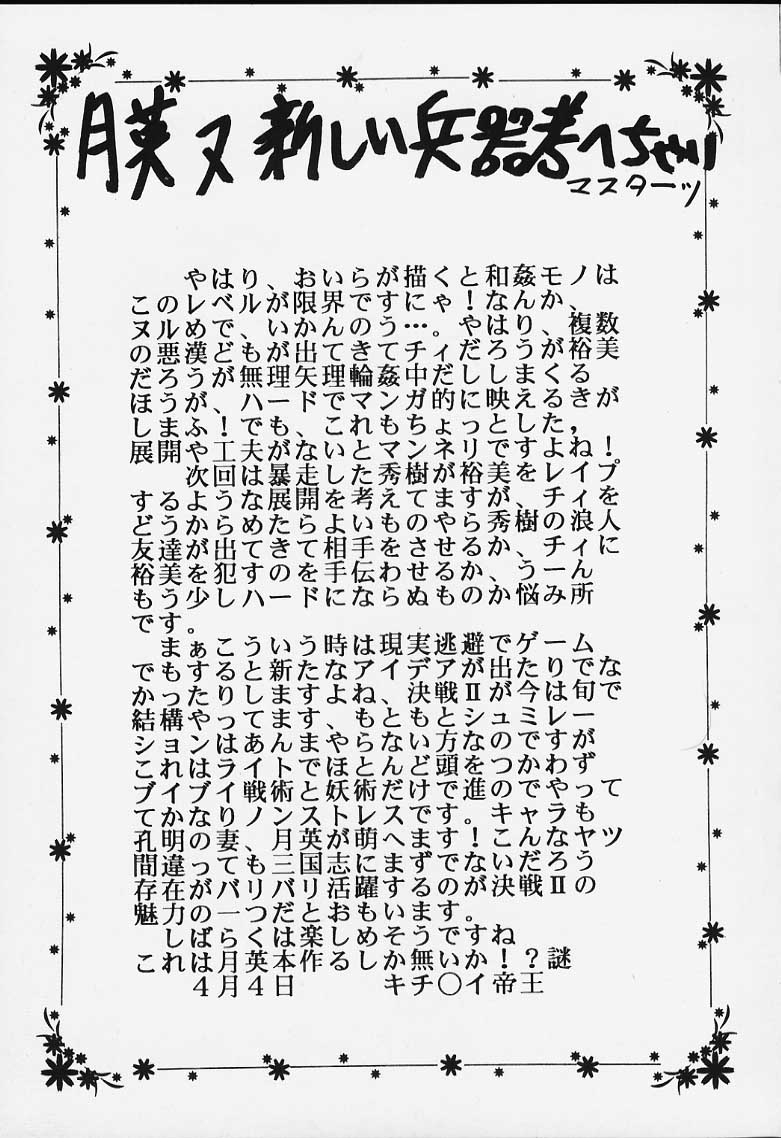 月英又新しい兵器考へちゃい
マスターッ
やはり、おいらが描くと和姦モノは
このレベルが限界ですにゃ!なんか、
ヌルめで、いかんのう…。やはり、複数
の悪漢どもが出てきてチィだろうが裕美
だろうが無理矢理輪姦中だしまくる
ほうが、ハードでマンガ的に映えるきが
しまふ!でも、これもちょっとした,
展開や工夫がないとマンネリですよね!
次回は暴走した秀樹が裕美をレイプ
するような展開を考えてますが、チィを
どうからめたらよいものやら秀樹の浪人
友達が出てきて相手をさせるか、チィに
裕美を犯すのを手伝わせるか、うーん
もう少しハードにならぬものか悩み所
です。
まぁこういう時は現実逃避でゲーム
でもすると新たなアイデアが出たりでな
かったりしますよね、決戦Ⅱが今は旬で
結構やってます、もともとシュミレー
ションはあんまやらない方なのですが
これはライトでほとんど頭をつかわず
ブイブイ戦術と妖術だけで進のでやって
てかなりノンストレスです。キャラも
孔明の妻、月英が萌へます!こんなヤツ
間違っても三国志にまずでないだろう
存在がバリバリ活躍するのが決戦Ⅱの
魅力の一つだとおもいます。
しばらくは楽しめそうですね
これは月英本作るしか無いか!?謎
4月4日 キチ〇イ帝王